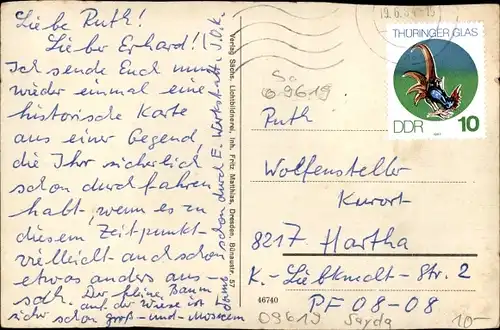 Liebe Ruth!
Lieber Erhard!
Ich sende Euch nun
wieder einmal eine
historische Karte
aus einer Gegend,
die Ihr sicherlich
schon durchfahren
habt, wenn es zu
diesem Zeitpunkt
vielleicht auch schon
etwas anders aus-
sah. Der kleine Baum
auf der Wiese ist
schon groß und
schon durch E. Werkstatt
Verlag Sächs. Lichtbildnerei, Inh. Fritz Matthias, Dresden, Bünaustr. 57
46740
19.6.
THÜRINGER GLAS
DDR 10
Sa
09619
Ruth
Wolfensteller
Kurort
8217 Hartha
K.-Liebknecht-Str. 2
PF 08-08
09619 Sayda
10-